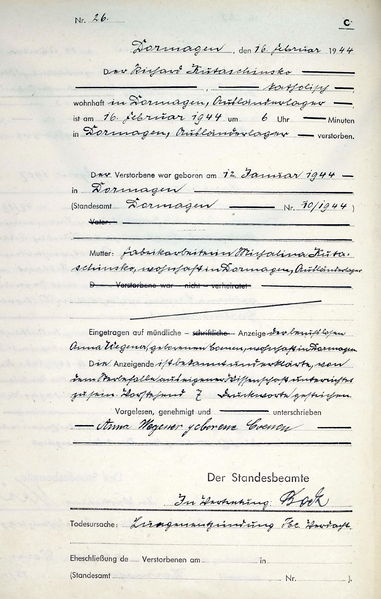 Nr. 26. C
Dormagen, den 16. Februar 1944
Der Richard Kutaschinsko
, katholisch
wohnhaft in Dormagen, Ausländerlager
ist am 16. Februar 1944 um 6 Uhr Minuten
in Dormagen, Ausländerlager verstorben.
Der Verstorbene war geboren am 12. Januar 1944
in Dormagen
(Standesamt Dormagen Nr. 10/1944)
Vater:
Mutter: Fabrikarbeiterin Michalina Kuta-
schinsko, wohnhaft in Dormagen, Ausländerlager
D Verstorbene war nicht verheiratet
Eingetragen auf mündliche schriftliche Anzeige der berufslosen
Anna Wegener, geborenen Coenen, wohnhaft in Dormagen
Die Anzeigende ist bekannt und erklärte, von
dem Sterbefalle aus eigener Wissenschaft unterrichtet
zu sein. Vorstehend 7 Druckworte gestrichen.
Vorgelesen, genehmigt und unterschrieben
Anna Wegener geborene Coenen
Der Standesbeamte
In Vertretung: Bock
Todesursache: Lungenentzündung Tbc. Verdacht.
Eheschließung de Verstorbenen am in
(Standesamt Nr. ).